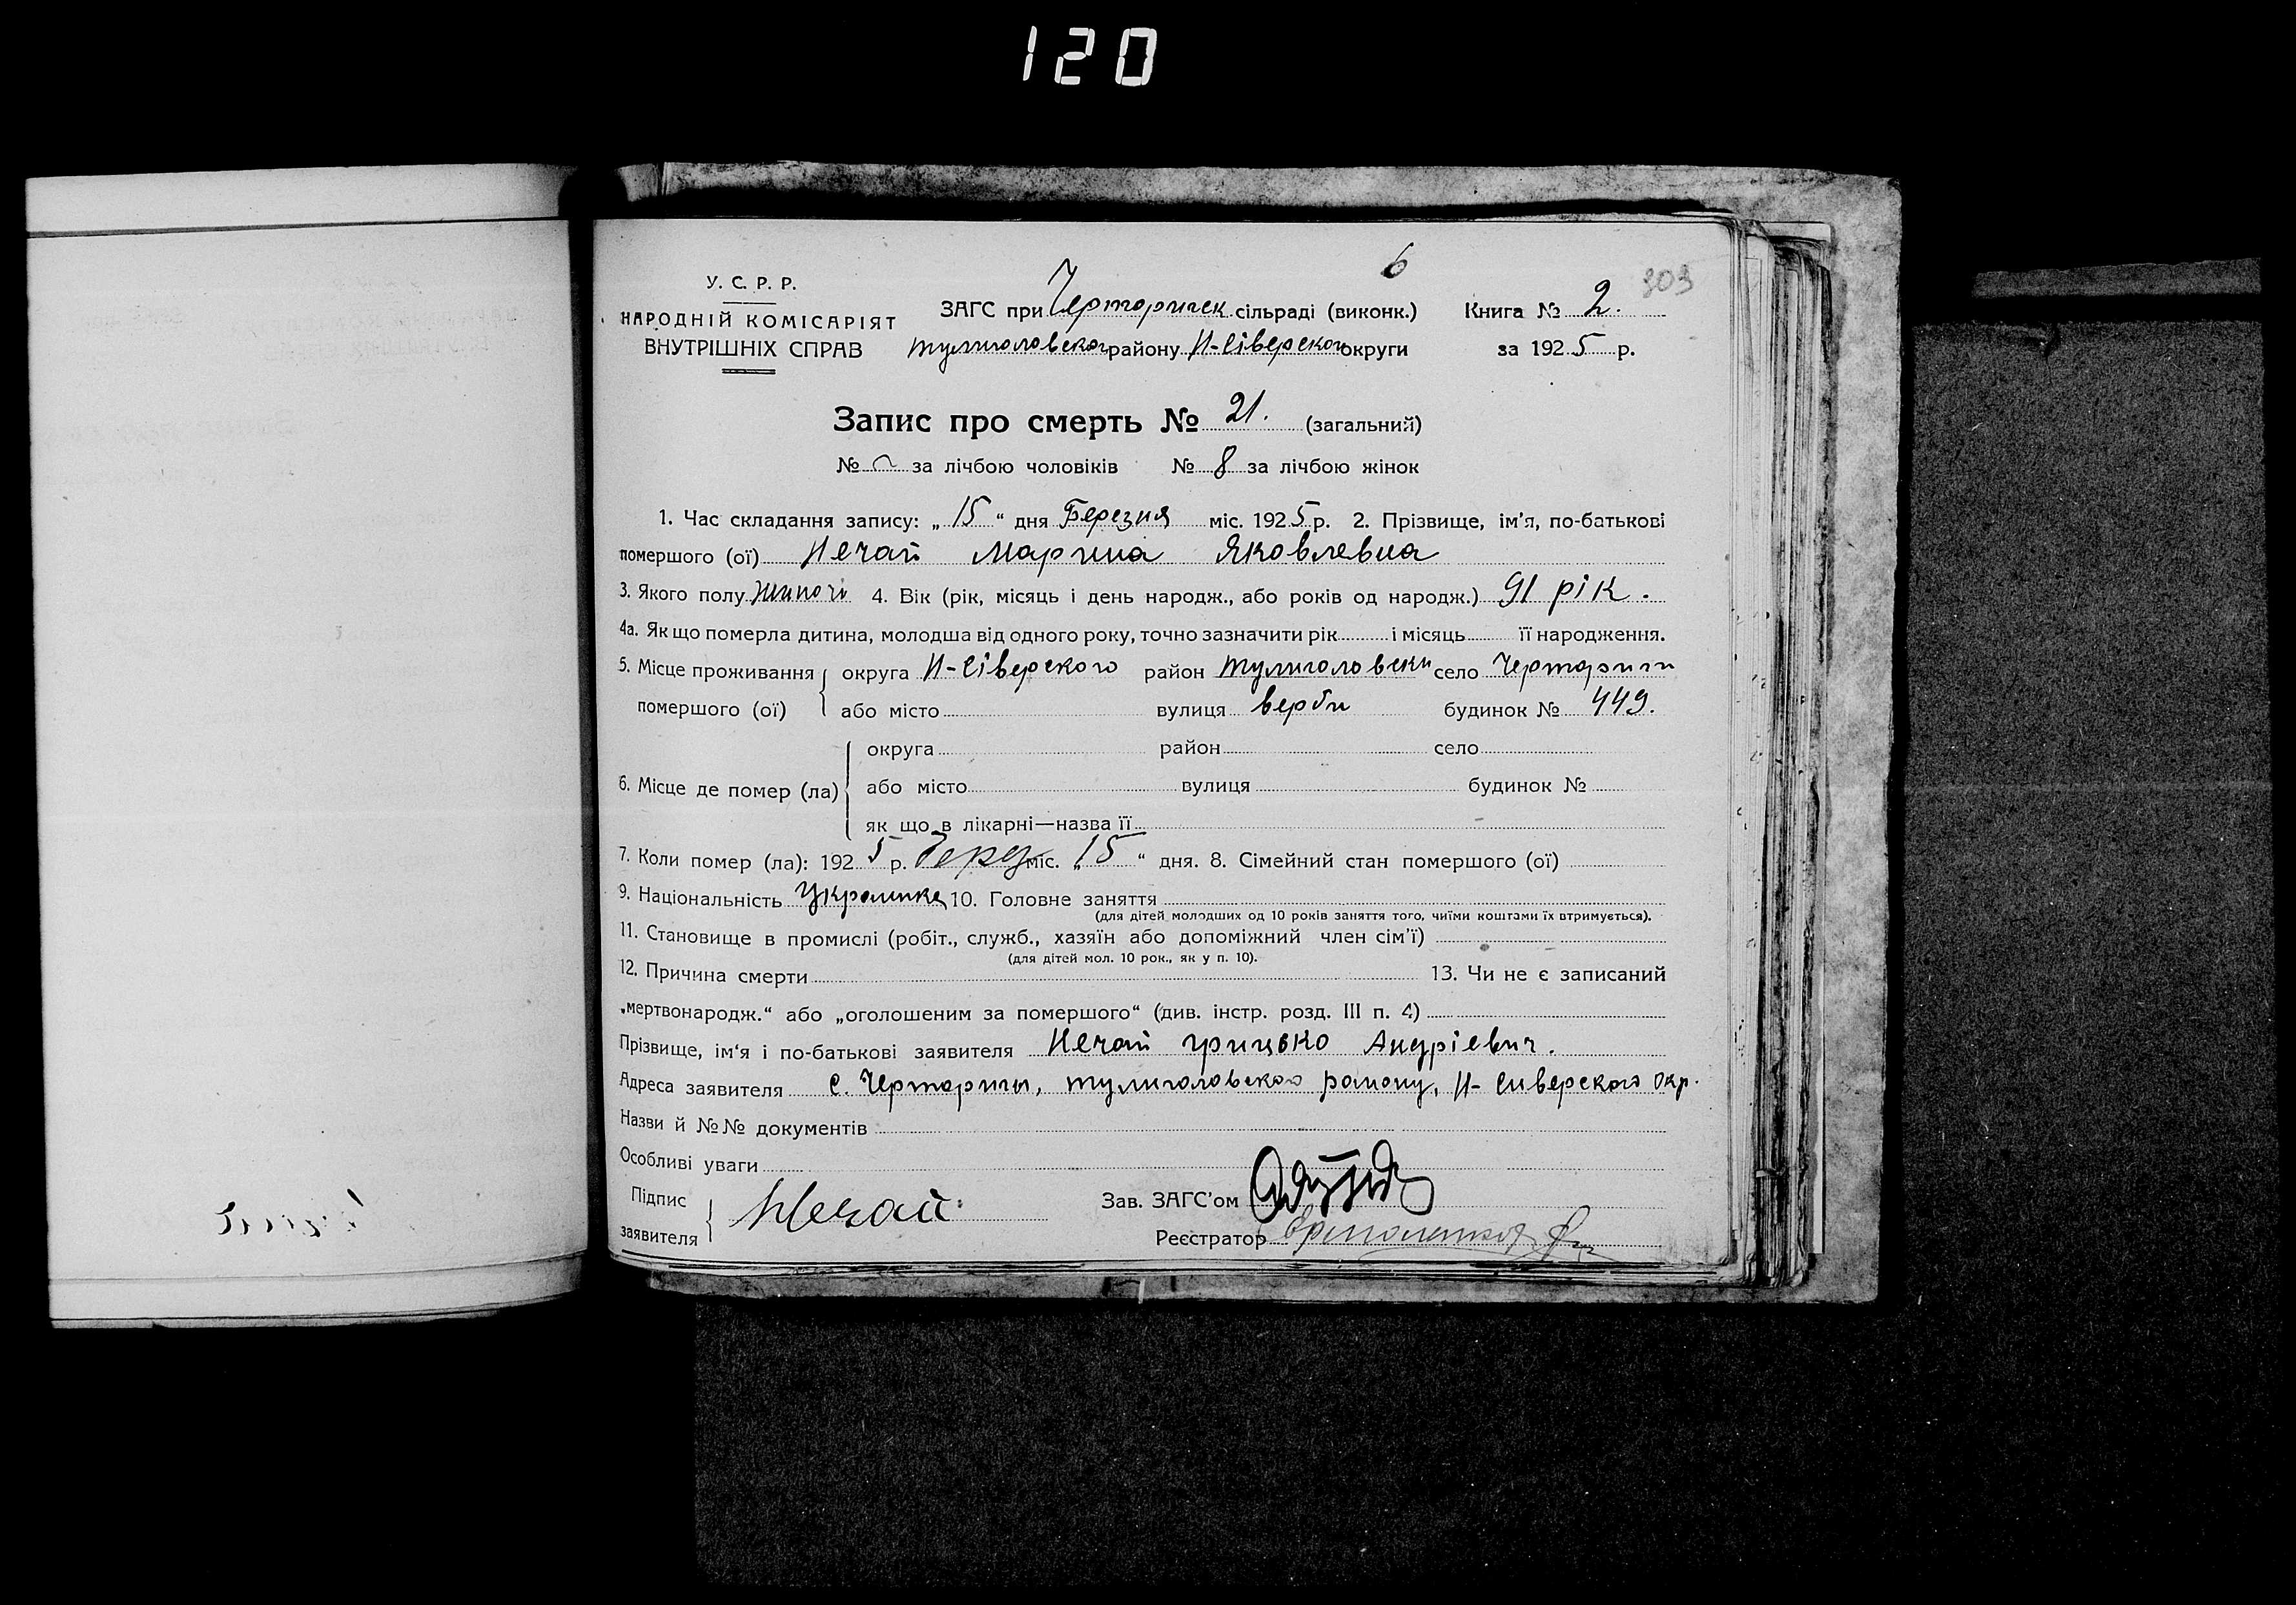 120
6
303
У. С. Р. Р.
НАРОДНІЙ КОМІСАРІЯТ
ВНУТРІШНІХ СПРАВ
ЗАГС при Черторигск сільраді (виконк.) Книга № 2.
тулиголовского району Н-Сіверского округи за 1925 р.
Запис про смерть № 21. (загальний)
№ за лічбою чоловіків № 8 за лічбою жінок
1. Час складання запису: „15“ дня Березня міс. 1925 р. 2. Прізвище, ім'я, по-батькові
помершого (ої) Нечай Марина Яковлевна
3. Якого полу жиночи 4. Вік (рік, місяць і день народж., або років од народж.) 91 рік.
4а. Як що померла дитина, молодша від одного року, точно зазначити рік і місяць її народження.
5. Місце проживання округа Н-Сіверского район тулиголовски село Черториги
помершого (ої) або місто вулиця верби будинок № 449.
округа район село
6. Місце де помер (ла) або місто вулиця будинок №
як що в лікарні—назва її
7. Коли помер (ла): 1925 р. Берез міс. „15“ дня. 8. Сімейний стан помершого (ої)
9. Національність Украинка 10. Головне заняття
(для дітей молодших од 10 років заняття того, чиїми коштами їх втримується).
11. Становище в промислі (робіт., служб., хазяїн або допоміжний член сім'ї)
(для дітей мол. 10 рок., як у п. 10).
12. Причина смерти 13. Чи не є записаний
„мертвонародж.“ або „оголошеним за помершого“ (див. інстр. розд. III п. 4)
Прізвище, ім'я і по-батькові заявителя Нечай грицько Андріевич.
Адреса заявителя с. Черториги, тулиголовского району, Н-Сиверского окр.
Назви й №№ документів
Особливі уваги
Підпис заявителя Нечай
Зав. ЗАГС'ом
Реєстратор